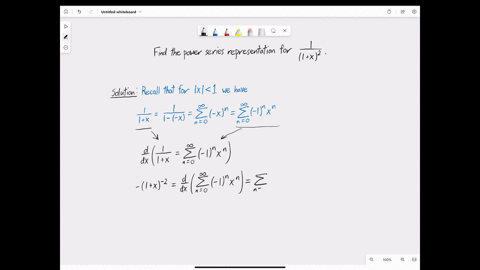 Untitled whiteboard
Find the power series representation for 1/(1+x)².
Solution: Recall that for |x|<1 we have
1/(1+x) = 1/(1-(-x)) = ∑_{n=0}^{∞} (-x)^n = ∑_{n=0}^{∞} (-1)^n x^n
d/dx (1/(1+x) = ∑_{n=0}^{∞} (-1)^n x^n)
-(1+x)^{-2} = d/dx (∑_{n=0}^{∞} (-1)^n x^n) = ∑_{n-}
100%